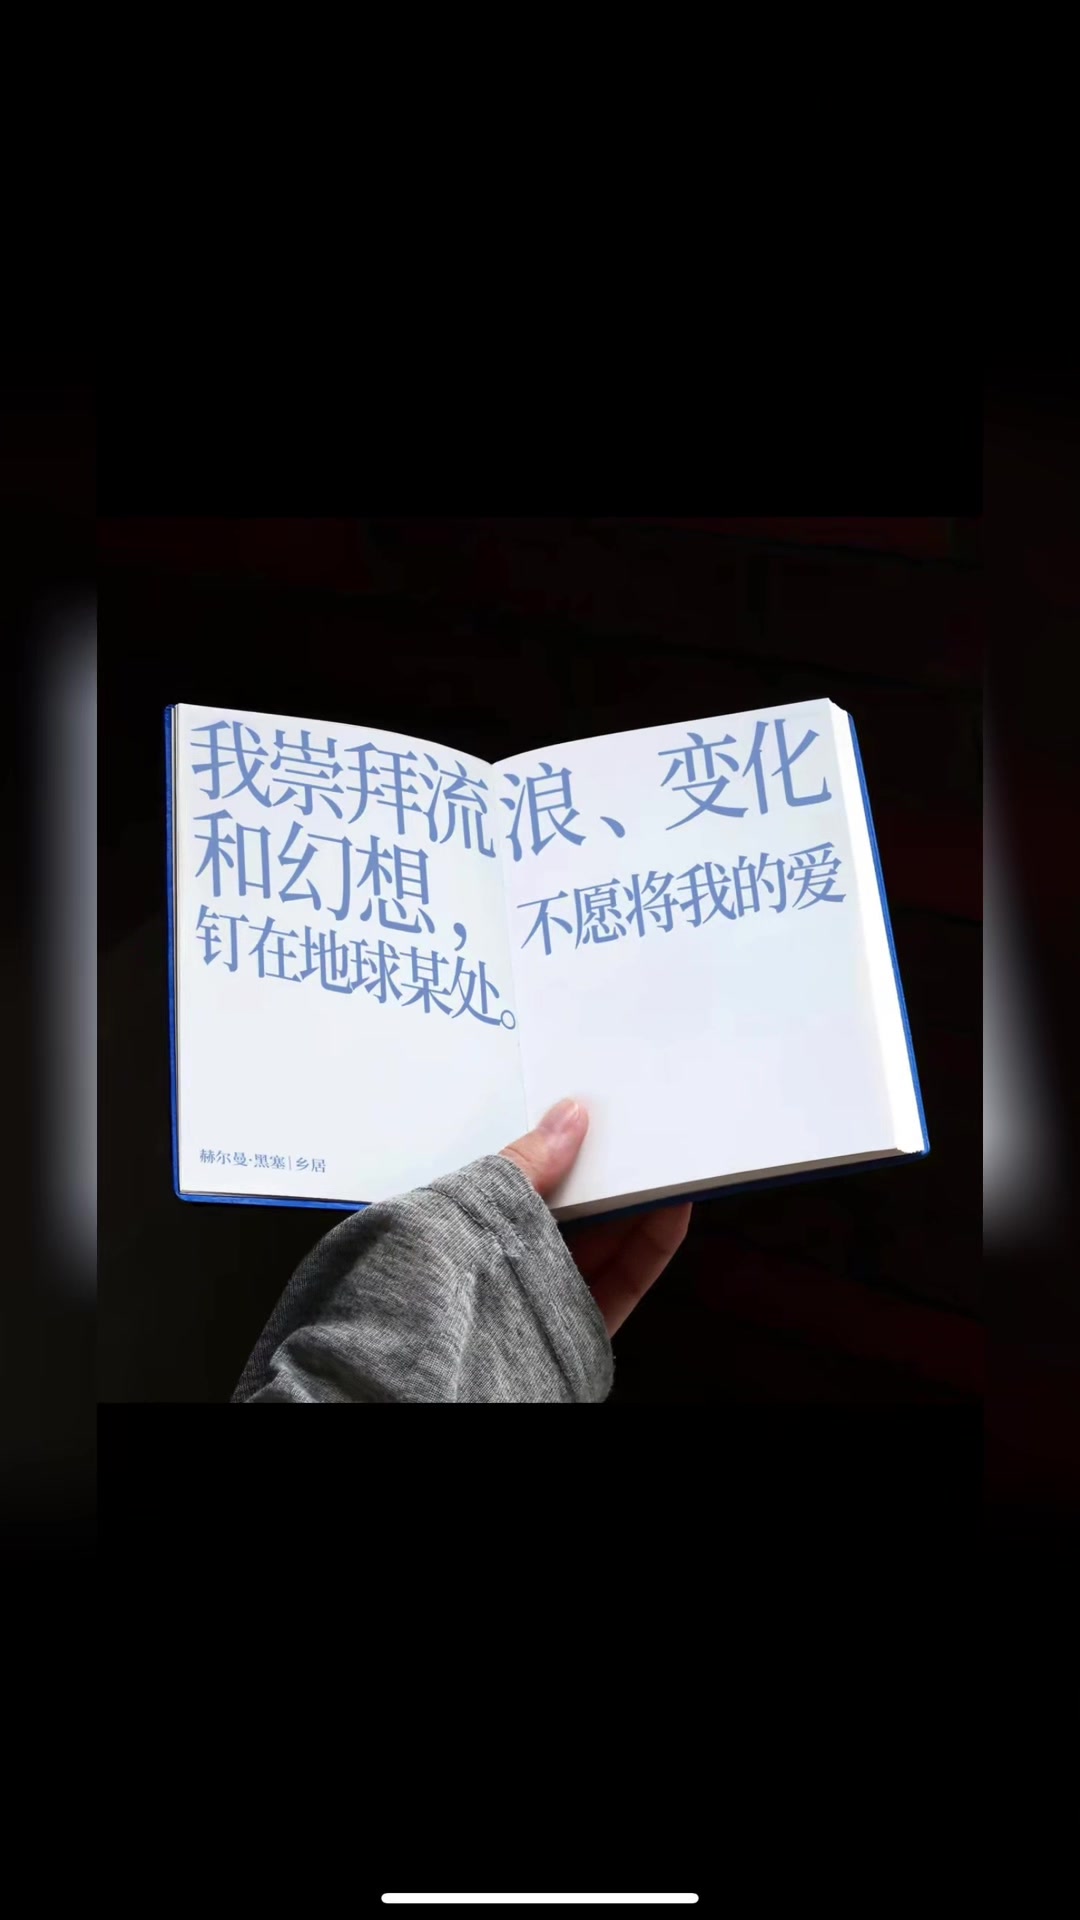 我崇拜流浪、变化
和幻想，不愿将我的爱
钉在地球某处。
赫尔曼·黑塞|乡居